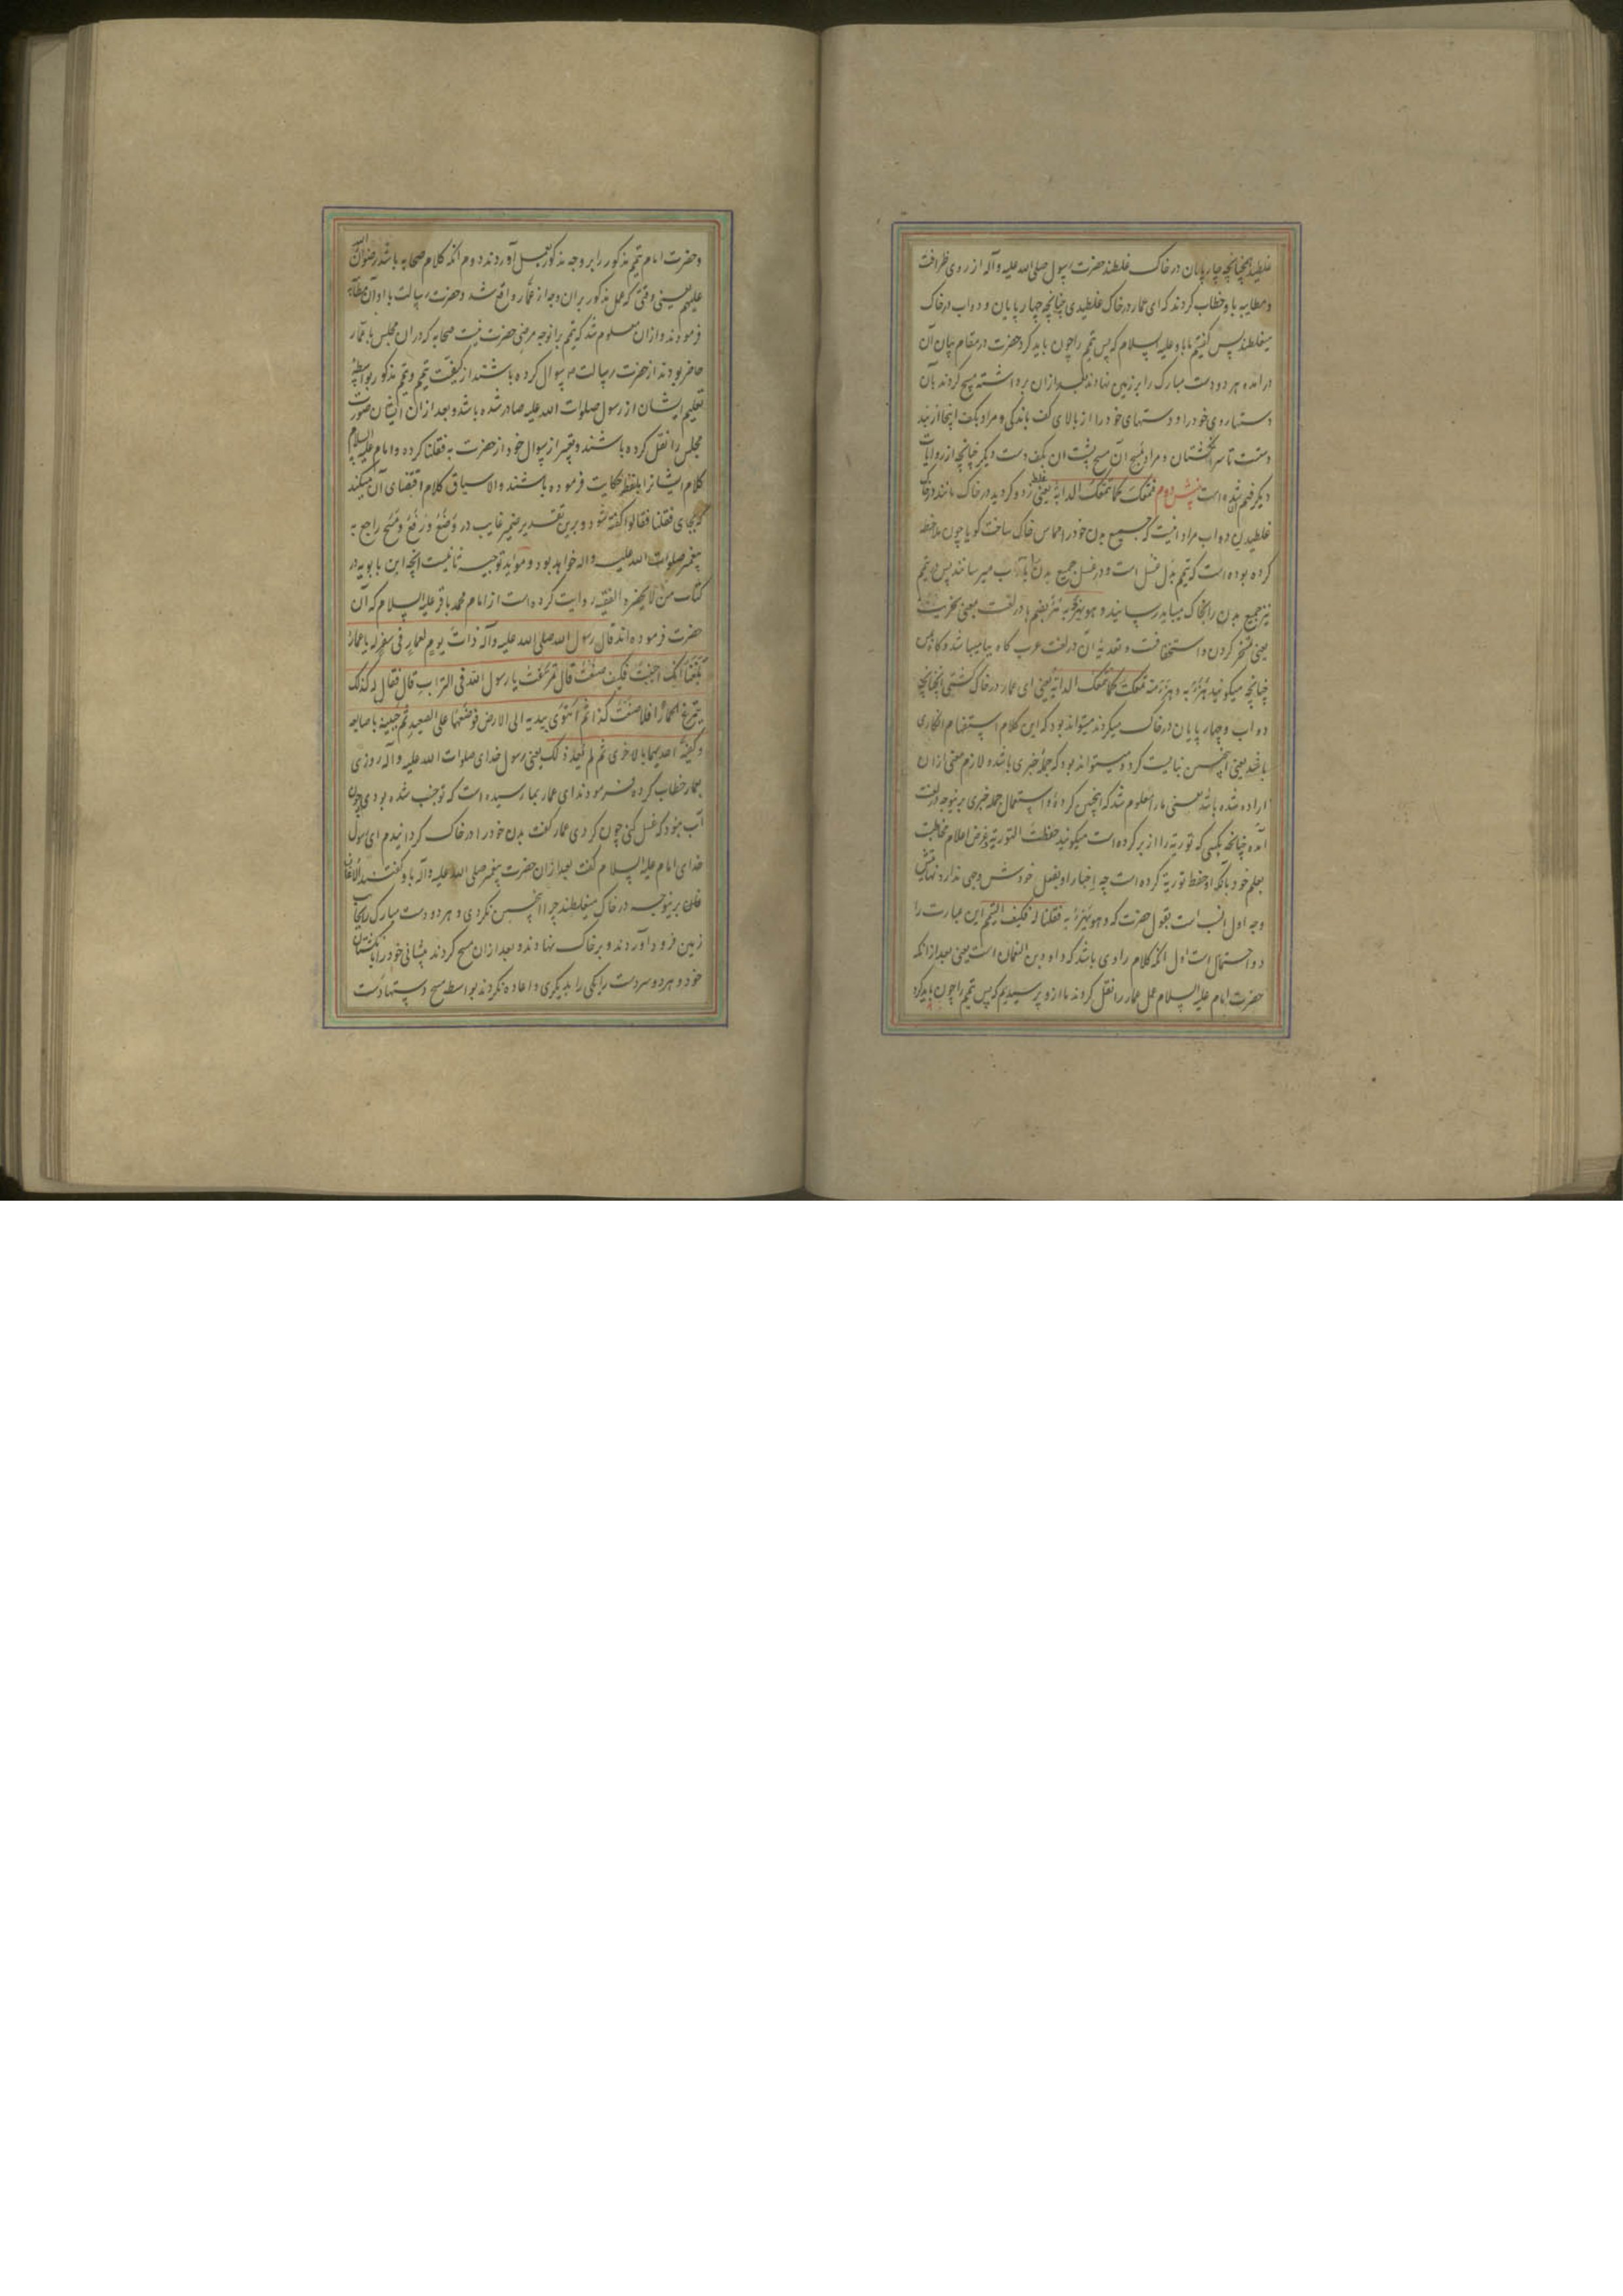 غلطید همچنانچه چارپایان در خاک غلطند حضرت رسول صلی الله علیه وآله از روی ظرافت
و مطایبه باو خطاب کردند که ای عمار در خاک غلطیدی چنانچه چهارپایان و دواب در خاک
میغلطند پس گفتیم ما باو علیه السلام که پس تیمم را چون باید کرد حضرت در مقام بیان آن
درآمده هر دو دست مبارک را بر زمین نهادند بعد ازان برداشته مسح کردند بآن
دستها روی خود را و دستهای خود را از بالای کف باندکی و مراد بکف اینجا از بند
دست تا سر انگشتان و مراد بمسح آن مسح پشت آن بکف دست دیگر چنانچه از روایات
دیگر فهم شده است بنشش دوم فتمعک کما تتمعک الدابة یعنی غلط زد و گردید در خاک مانند در خاک
غلطیدن دواب مراد اینست که جمیع بدن خود را مماس خاک ساخت گویا چون ملاحظه
کرده بوده است که تیمم بدل غسل است و در غسل جمیع بدن را بآب میرسانند پس در تیمم
نیز جمیع بدن را بخاک میباید رسانید و هو یهزء به هزء بضم ها در لغت بمعنی سخریت
یعنی تمسخر کردن و استخفافست و تعدیه آن در لغت عرب گاه ببا میباشد و گاه بمن
چنانچه میگویند هزئ به و هزئ منه تمعکت کما تتمعک الدابة یعنی ای عمار در خاک گشتی آنچنانچه
دواب و چهارپایان در خاک میگردند میتواند بود که این کلام استفهام انکاری
باشد یعنی اینچنین نبایست کرد و میتواند بود که جمله خبری باشد و لازم معنی ازان
اراده شده باشد یعنی ما را معلوم شد که اینچنین کردهٔ و استعمال جمله خبری برینوجه در لغت
آمده چنانچه بکسی که توریة را از بر کرده است میگویند حفظت التوریة و غرض اعلام مخاطبست
بعلم خود بآنکه او حفظ توریة کرده است چه اخبار او بفعل خودش وجهی ندارد نهایتش
وجه اول انسب است بقول حضرت که و هو یهزء به فقلنا له فکیف التیمم این عبارت را
دو احتمال است اول آنکه کلام راوی باشد که داود بن النعمان است یعنی بعد از آنکه
حضرت امام علیه السلام عمل عمار را نقل کردند ما ازو پرسیدیم که پس تیمم را چون باید کرد
و حضرت امام تیمم مذکور را بر وجه مذکور بعمل آوردند دوم آنکه کلام صحابه باشد رضوان الله
علیهم یعنی وقتی که عمل مذکور بران وجه از عمار واقع شد و حضرت رسالت با او آن مطایبه
فرمودند و ازان معلوم شد که تیمم برانوجه مرضی حضرت نیست صحابه که دران مجلس با عمار
حاضر بودند از حضرت رسالت سوال کرده باشند از کیفیت تیمم و تیمم مذکور بواسطهٔ
تعلیم ایشان از رسول صلوات الله علیه صادر شده باشد و بعد ازان ایشان صورت
مجلس را نقل کرده باشند و تعبیر از سوال خود از حضرت به فقلنا کرده و امام علیه السلام
کلام ایشانرا بلفظه حکایت فرموده باشند والا سیاق کلام اقتضای آن میکند
که بجای فقلنا فقالوا گفته شود و برین تقدیر ضمیر غایب در وضع و رفع و مسح راجع به
پیغمبر صلوات الله علیه واله خواهد بود و مؤید توجیه ثانیست آنچه ابن بابویه در
کتاب من لا یحضره الفقیه روایت کرده است از امام محمد باقر علیه السلام که آن
حضرت فرموده اند قال رسول الله صلی الله علیه وآله ذات یوم لعمار فی سفر له یا عمار
بلغنا انک اجنبت فکیف صنعت قال تمرغت یا رسول الله فی التراب قال فقال له کذلک
یتمرغ الحمار افلا صنعت کذا ثم اهوی بیدیه الی الارض فوضعهما علی الصعید ثم مسح جبینیه باصابعه
و کفیه احدیهما بالاخری ثم لم یعد ذلک یعنی رسول خدای صلوات الله علیه وآله روزی
بعمار خطاب کرده فرمودند ای عمار بما رسیده است که تو جنب شده بودی چون
آب نبود که غسل کنی چون کردی عمار گفت بدن خود را در خاک گردانیدم ای رسول
خدای امام علیه السلام گفت بعد ازان حضرت پیغمبر صلی الله علیه وآله باو گفتند الاغان
برینوجه در خاک میغلطند چرا اینچنین نکردی و هر دو دست مبارک را بجانب
زمین فرود آوردند و بر خاک نهادند و بعد ازان مسح کردند پیشانی خود را بانگشتان
خود و هر دو سر دست را یکی را بدیگری و اعاده نکردند بواسطه مسح دستها دست